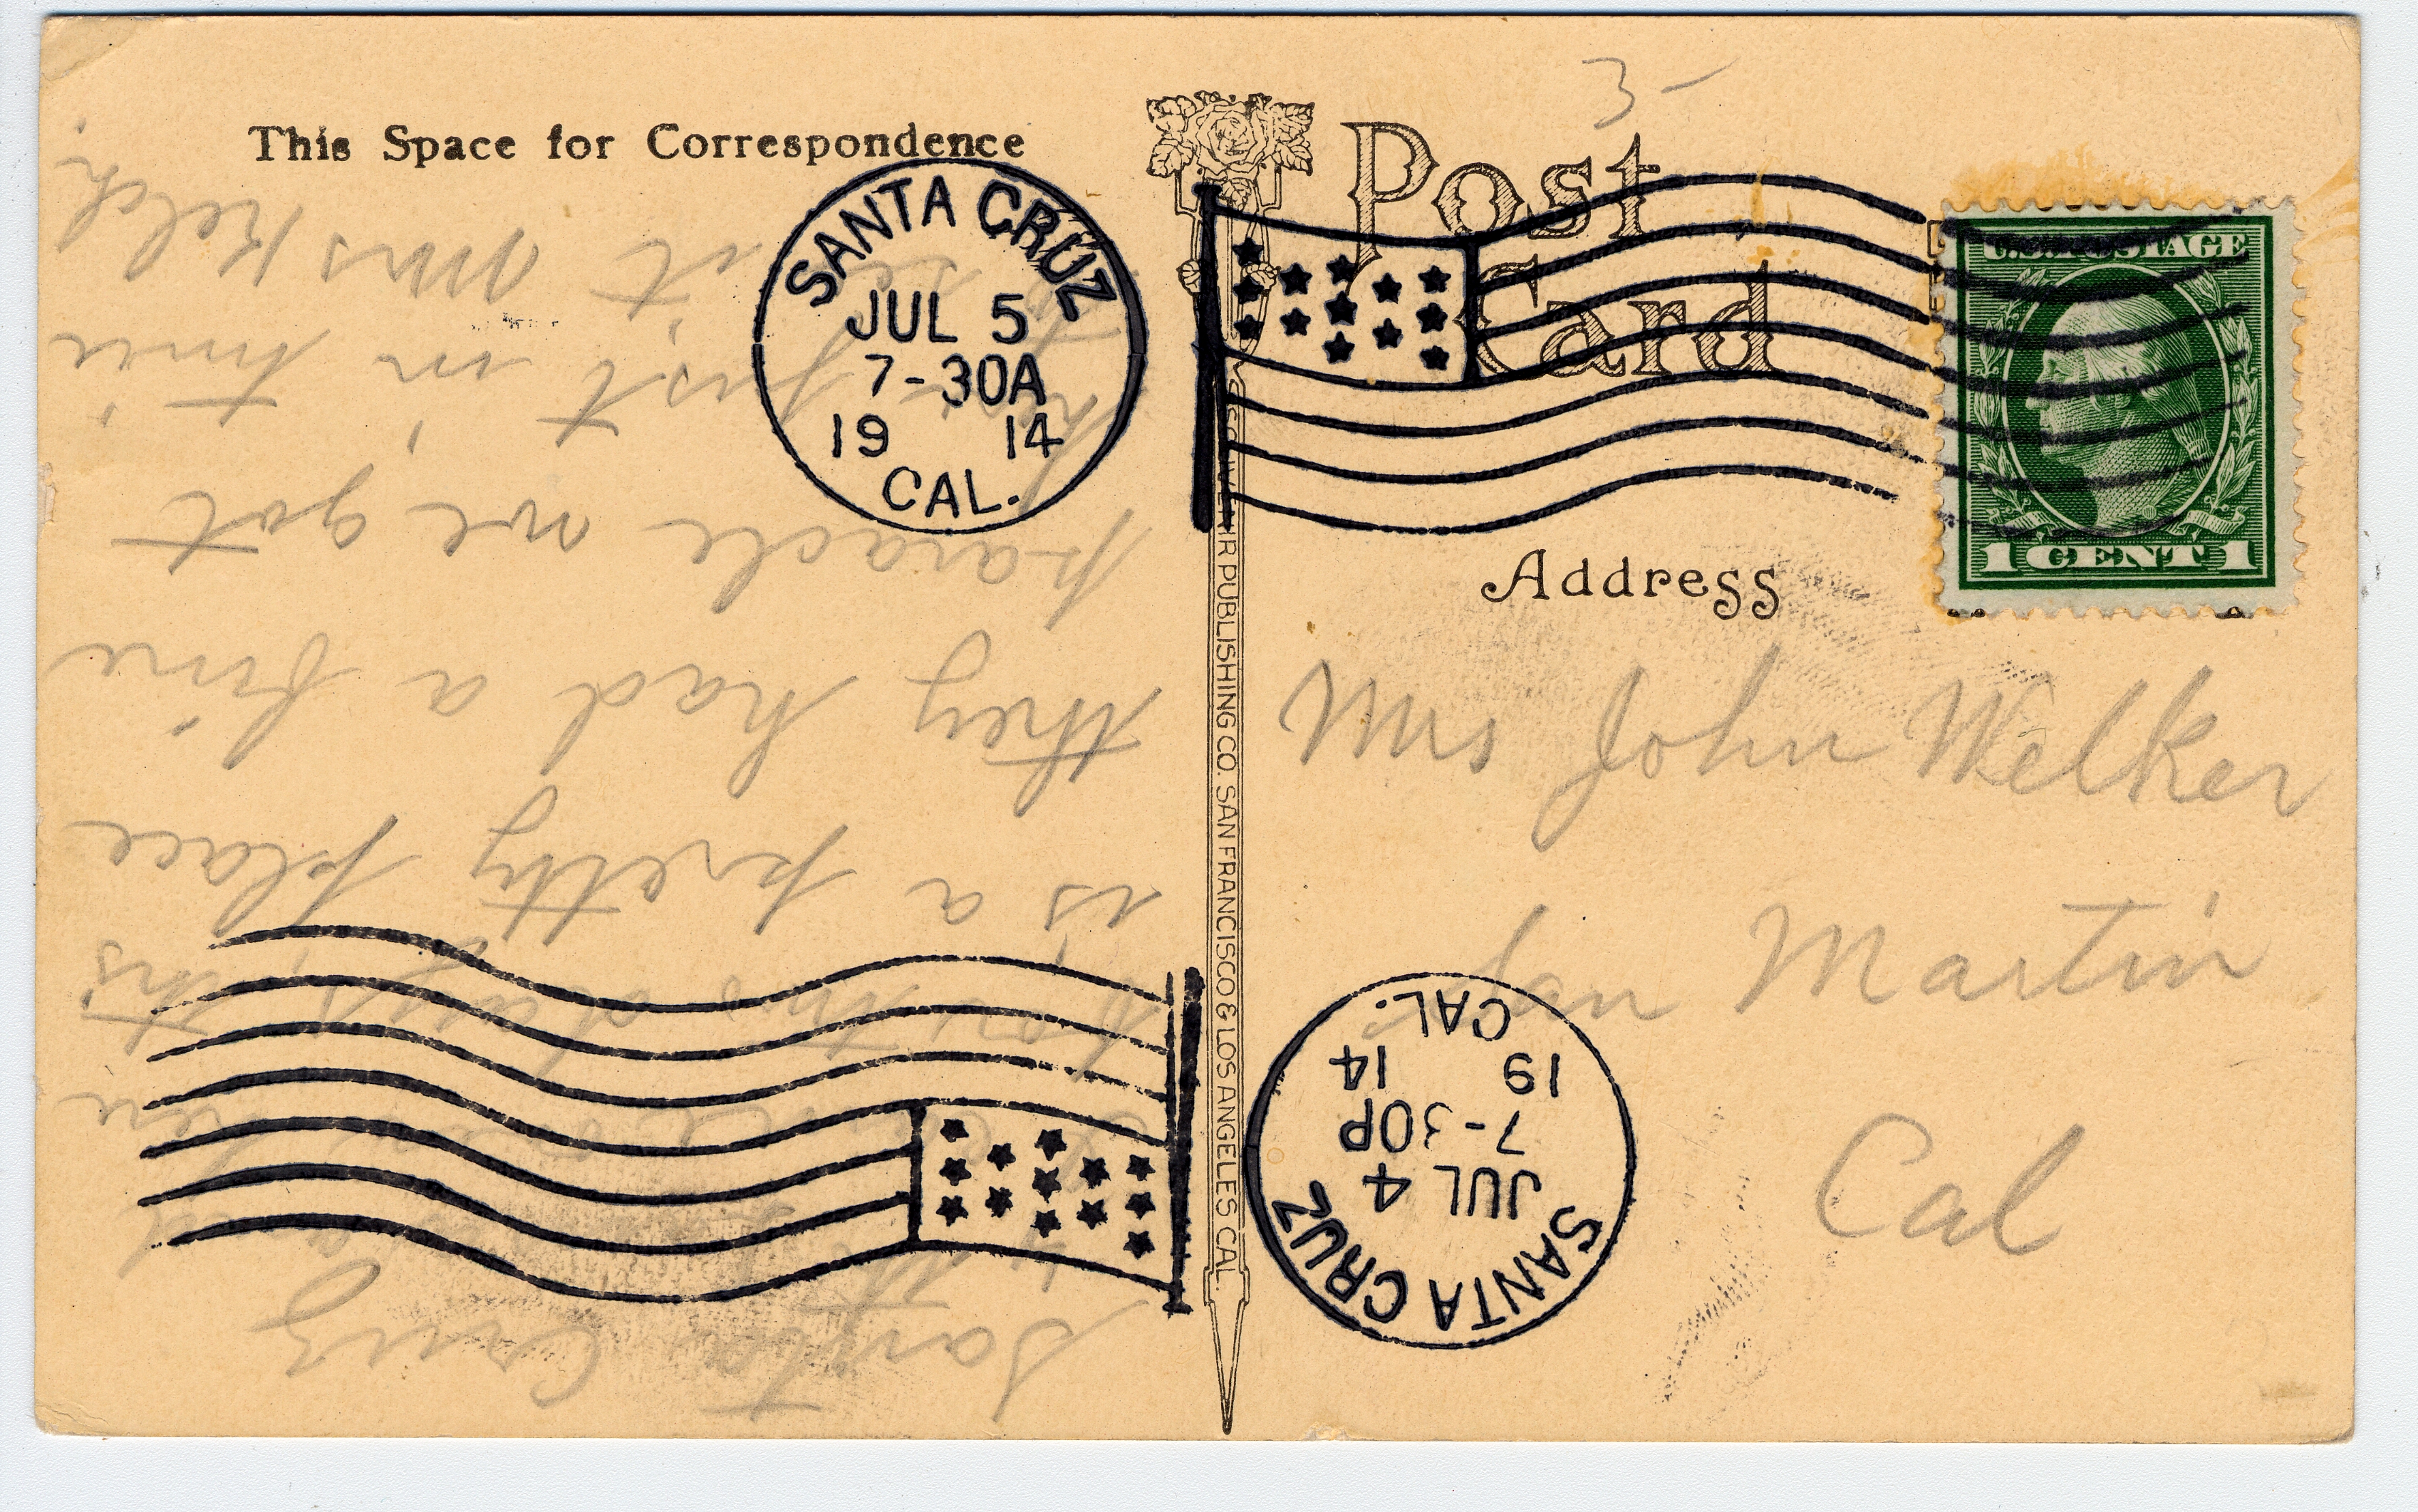 This Space for Correspondence
Post
Card
SANTA CRUZ
JUL 5
7-30A
19 14
CAL.
U.S. POSTAGE
1 CENT 1
Address
Mrs John Welker
San Martin
Cal
PUBLISHING CO. SAN FRANCISCO & LOS ANGELES CAL.
SANTA CRUZ
JUL 4
7-30P
19 14
CAL.
Santa Cruz
this
is a pretty place
they had a fine
parade we got
here just in time
to see it Mrs Kelch.